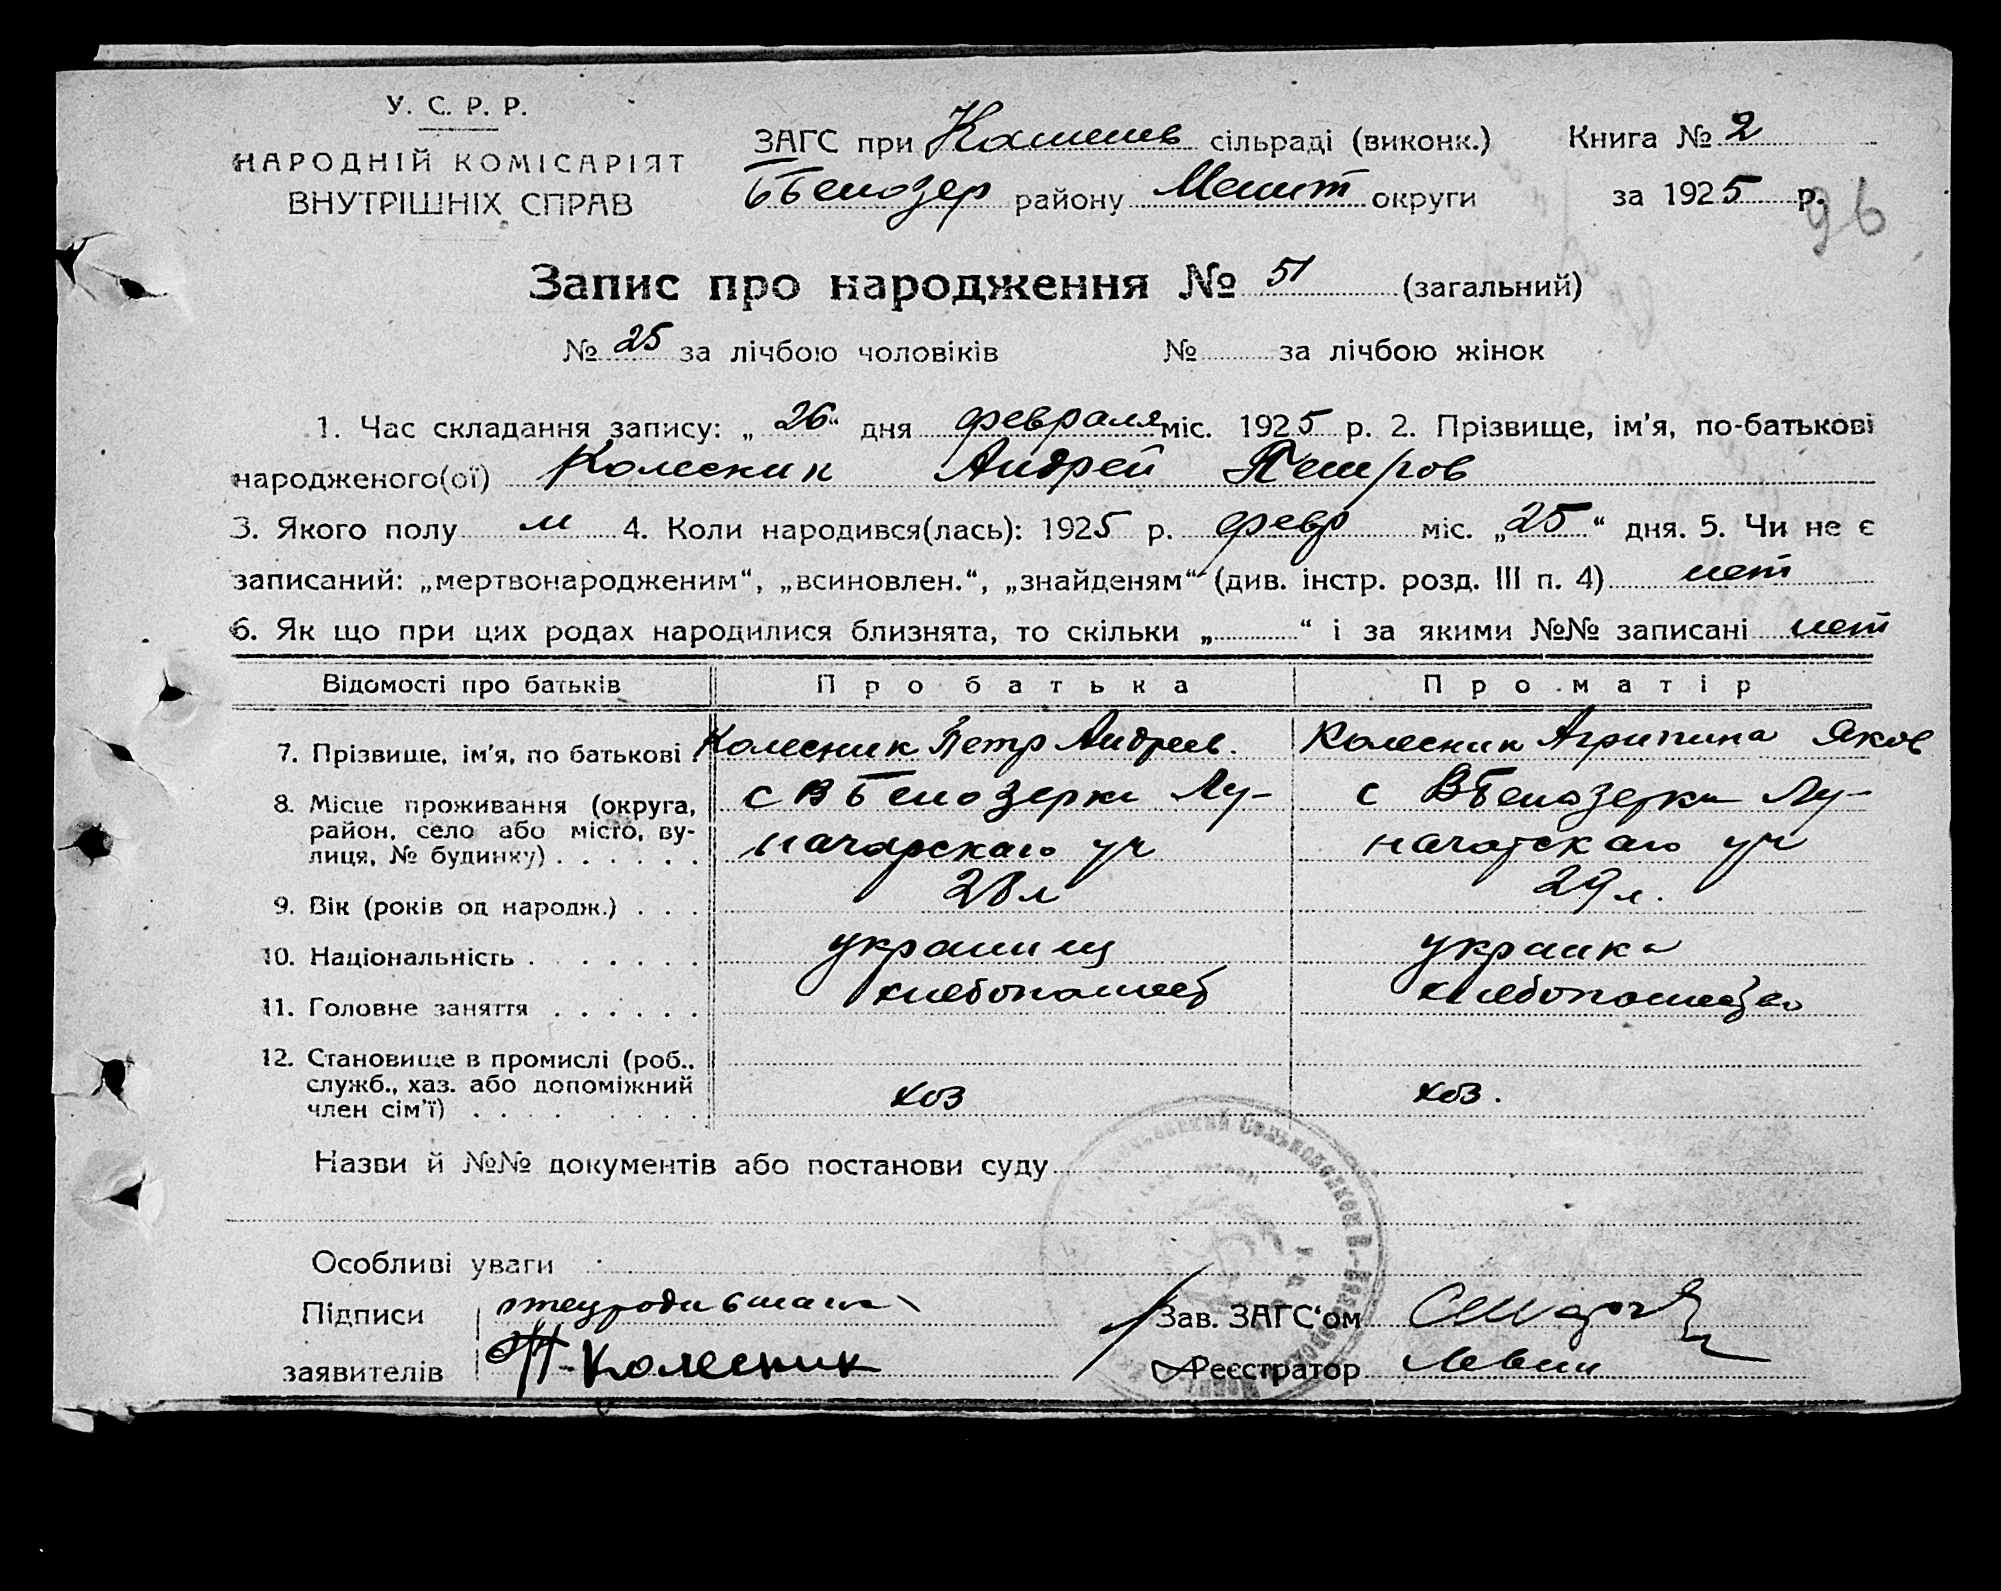 У. С. Р. Р.
НАРОДНІЙ КОМІСАРІЯТ
ВНУТРІШНІХ СПРАВ
ЗАГС при сільраді (виконк.)
ББелозер району Мелит округи
Книга № 2
за 1925 р.
96
Запис про народження № 51 (загальний)
№ 25 за лічбою чоловіків № за лічбою жінок
1. Час складання запису: „26“ дня февраля міс. 1925 р. 2. Прізвище, ім'я, по-батькові
народженого(ої) Колесник Андрей Петров
3. Якого полу м 4. Коли народився(лась): 1925 р. февр міс. „25“ дня. 5. Чи не є
записаний: „мертвонародженим“, „всиновлен.“, „знайденям“ (див. інстр. розд. III п. 4) нет
6. Як що при цих родах народилися близнята, то скільки „ “ і за якими №№ записані нет
Відомості про батьків Про батька Про матір
7. Прізвище, ім'я, по батькові Колесник Петр Андреев. Колесник Агрипина Яков
8. Місце проживання (округа, с В Белозерка Лу- с ВБелозерка Лу-
район, село або місто, ву-
лиця, № будинку) . . . . . . начарскаго уч начарскаго уч
9. Вік (років од народж.) . . . 28 л 29 л.
10. Національність . . . . . . . украинц украинка
11. Головне заняття . . . . . . хлебопашец хлебопашество
12. Становище в промислі (роб.,
служб., хаз. або допоміжний
член сім'ї) . . . . . . . хоз хоз.
Назви й №№ документів або постанови суду
Особливі уваги
Підписи
заявителів П-Колесник
Зав. ЗАГС'ом
Реєстратор Левин